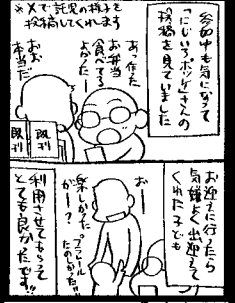 ※Xで託児の様子を
投稿してくれます
参加中も気になって
「にじいろポッケ」さんの
投稿を見ていました
あ、作った
お弁当
食べてる
よかたー
おお
本当だ
既刊
既刊
お迎えに行ったら
気嫌よく出迎えて
くれた子ども
おー
楽しかった
かー？
プラレール
たのしかた
利用させてもらって
とても良かたです!!